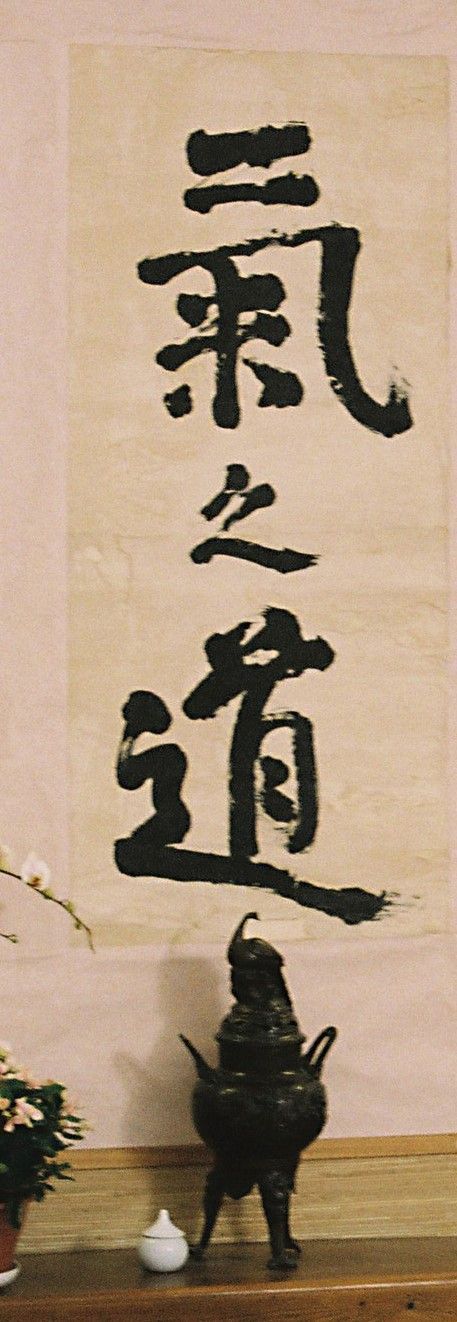 氣之道